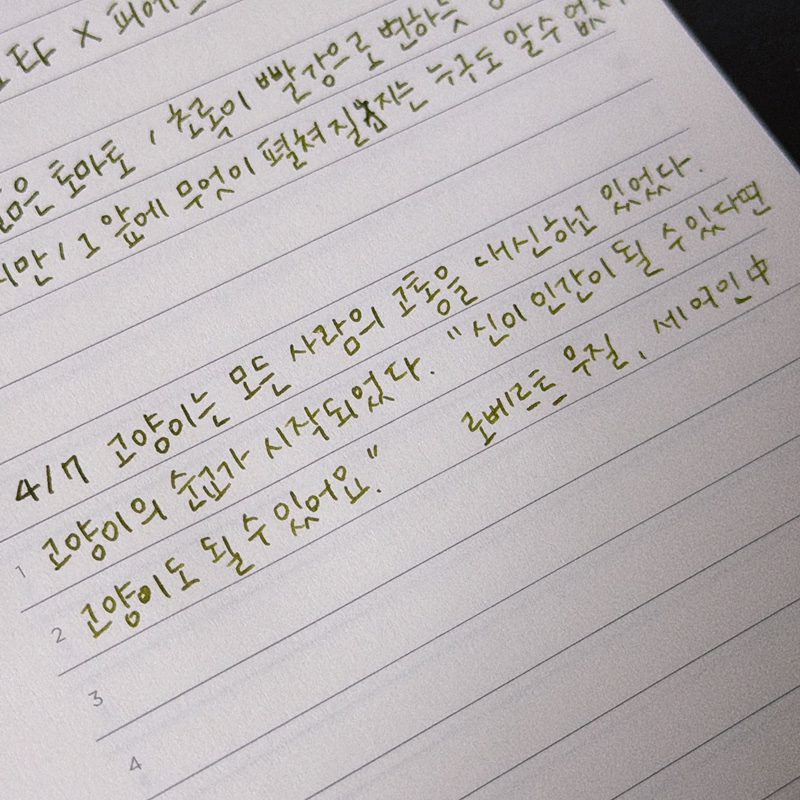 타 × 피에
토마토, 초록이 빨강으로 변하는
지만, 그 앞에 무엇이 펼쳐질지는 누구도 알 수 없
4/7 고양이는 모든 사람의 고통을 대신하고 있었다.
고양이의 순교가 시작되었다. "신이 인간이 될 수 있다면
1
고양이도 될 수 있어요." 로베르트 우질, 세 여인 中
2
3
4